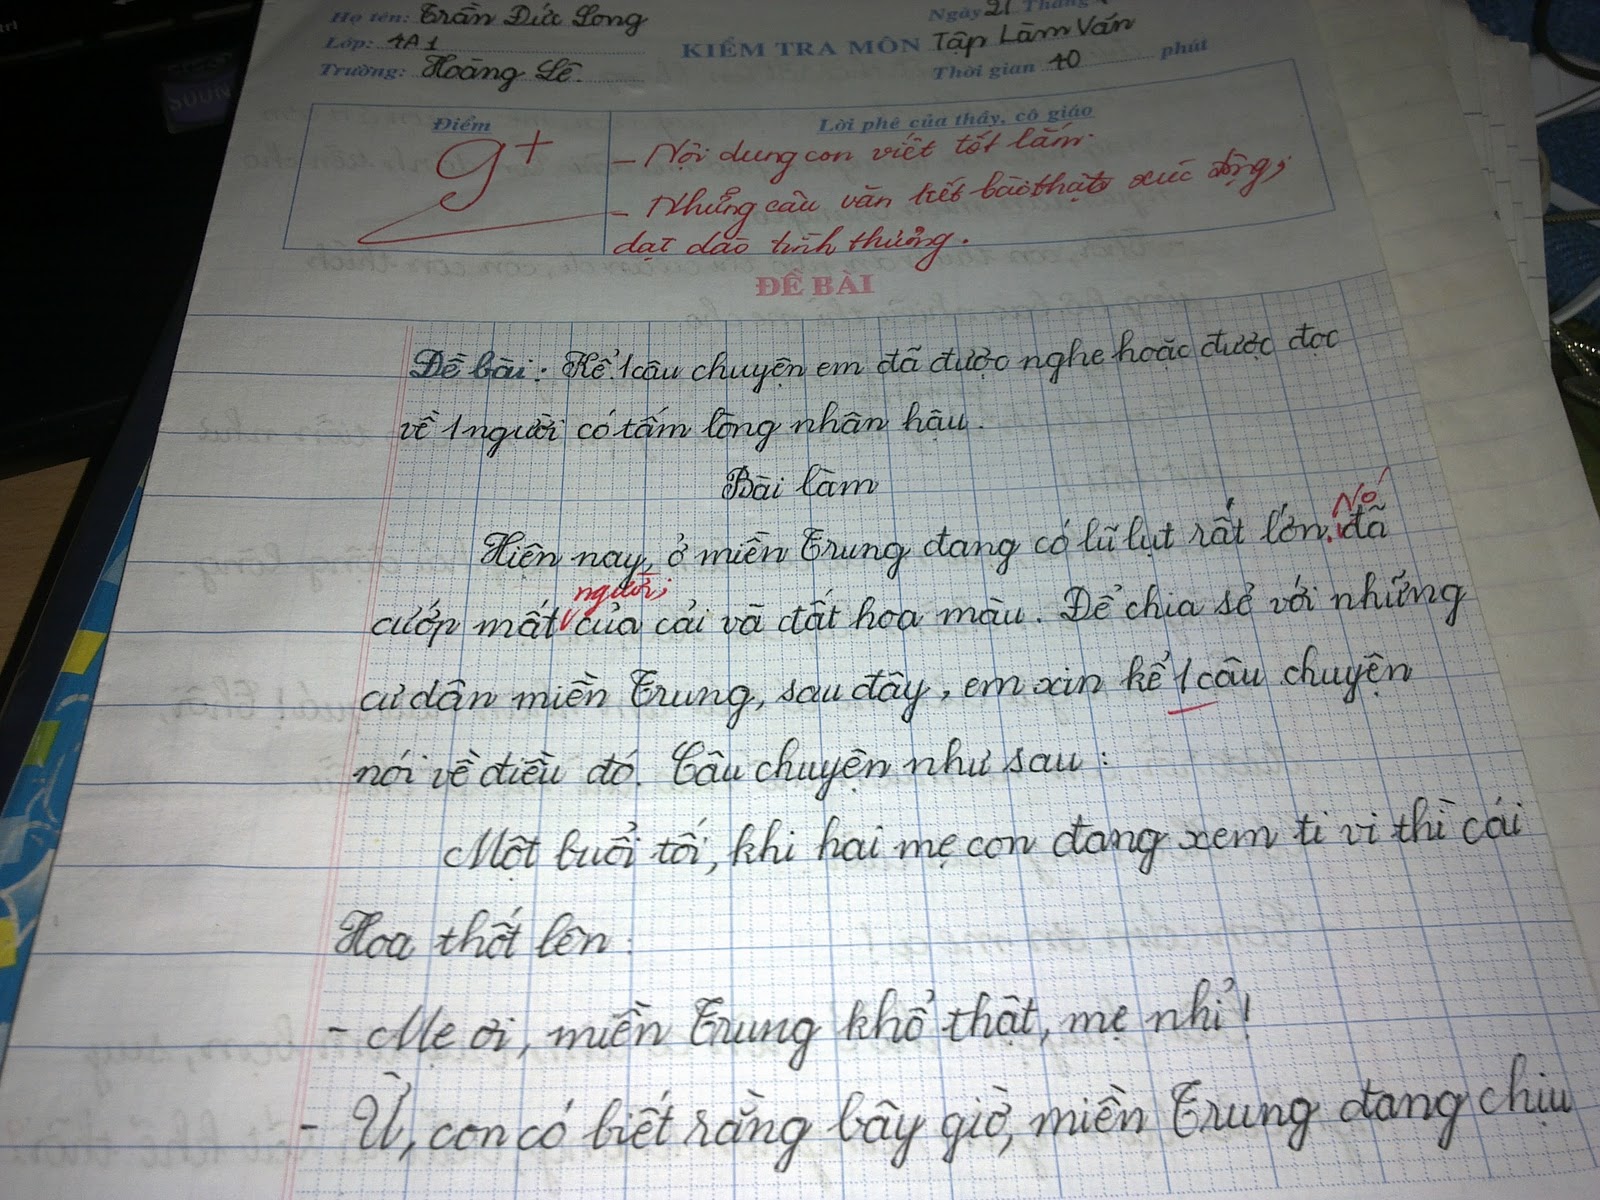 Họ tên: Trần Đức Long
Ngày 21 Tháng
Lớp: 4A1
KIỂM TRA MÔN Tập Làm Văn
Trường: Hoàng Lê.
Thời gian 40 phút
Điểm
Lời phê của thầy, cô giáo
9+
- Nội dung con viết tốt lắm.
- Những câu văn kết bài thật xúc động,
dạt dào tình thương.
ĐỀ BÀI
Đề bài: Kể 1 câu chuyện em đã được nghe hoặc được đọc
về 1 người có tấm lòng nhân hậu.
Bài làm
Nó
Hiện nay, ở miền Trung đang có lũ lụt rất lớn. đã
người,
cướp mất của cải và đất hoa màu. Để chia sẻ với những
cư dân miền Trung, sau đây, em xin kể 1 câu chuyện
nói về điều đó. Câu chuyện như sau:
Một buổi tối, khi hai mẹ con đang xem ti vi thì cái
Hoa thốt lên:
- Mẹ ơi, miền Trung khổ thật, mẹ nhỉ!
- Ừ, con có biết rằng bây giờ, miền Trung đang chịu